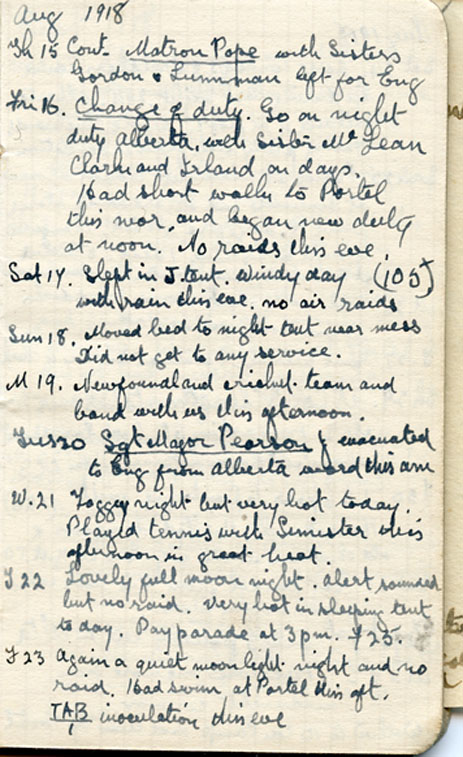 Aug 1918
Th 15 Cont. Matron Pope with Sisters
Gordon & Lunnman left for Eng
Fri 16. Change of duty. Go on night
duty Alberta, with Sister McLean
Clarke and Ireland on days.
Had short walk to Portel
this mor, and began new duty
at noon. No raids this eve.
Sat 17. Slept in J. tent. Windy day (105)
with rain this eve. no air raids
Sun 18. Moved bed to night tent near mess
Did not get to any service.
M 19. Newfoundland cricket team and
band with us this afternoon.
Tues 20 Sgt Major Pearson evacuated
to Eng from Alberta ward this am
W. 21 Foggy night but very hot today.
Played tennis with this
afternoon in great heat.
T 22 Lovely full moon night. alert sounded
but no raid. Very hot in sleeping tent
to day. Pay parade at 3 pm. 25.
F 23 Again a quiet moonlight night and no
raid. Had swim at Portel this aft.
TAB inoculation this eve